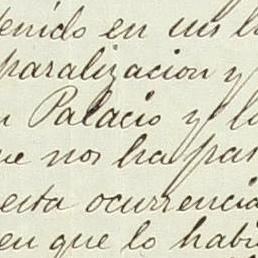 tenido en un l
paralizacion y
n Palacio y l
ue nos ha pas
esta ocurrencia
en que lo habi